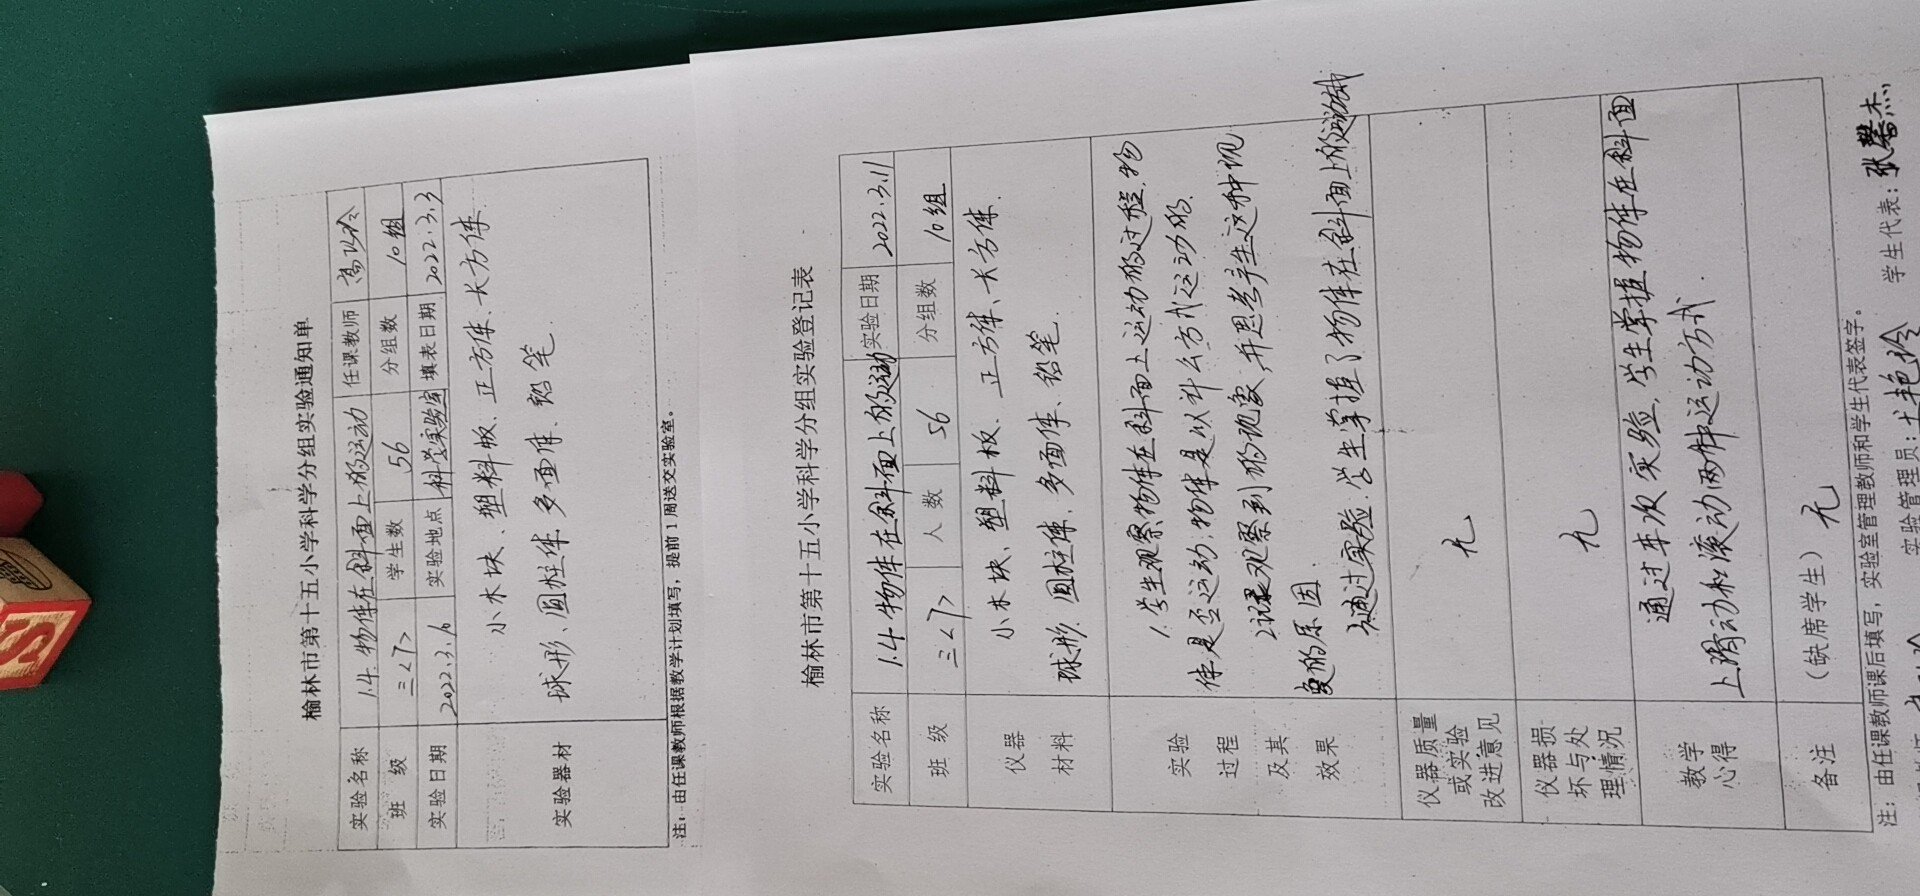 榆林市第十五小学科学分组实验通知单
实验名称 1.4 物体在斜面上的运动 任课教师
班 级 三<7> 学生数 56 分组数 10组
实验日期 2022.3.6 实验地点 科学实验室 填表日期 2022.3.3
实验器材 小木块、塑料板、正方体、长方体.
球形、圆柱体、多面体、铅笔.
注：由任课教师根据教学计划填写，提前 1 周送交实验室。
榆林市第十五小学科学分组实验登记表
实验名称 1.4 物体在斜面上的运动 实验日期 2022.3.11
班 级 三<7> 人 数 56 分组数 10组
仪器 小木块、塑料板、正方体、长方体.
材料 球形、圆柱体、多面体、铅笔.
实验
过程
及其
效果
1.学生观察物体在斜面上运动的过程,物
体是否运动;物体是以什么方式运动的.
2.记录观察到的现象,并思考产生这种现
象的原因.
通过实验,学生掌握了物体在斜面上的运动方式
仪器质量
或实验
改进意见
无
仪器损
坏与处
理情况
无
教学
心得
通过本次实验,学生掌握物体在斜面
上滑动和滚动两种运动方式.
备注 （缺席学生）无
注：由任课教师课后填写，实验室管理教师和学生代表签字。
实验管理员： 艳玲 学生代表：张馨杰